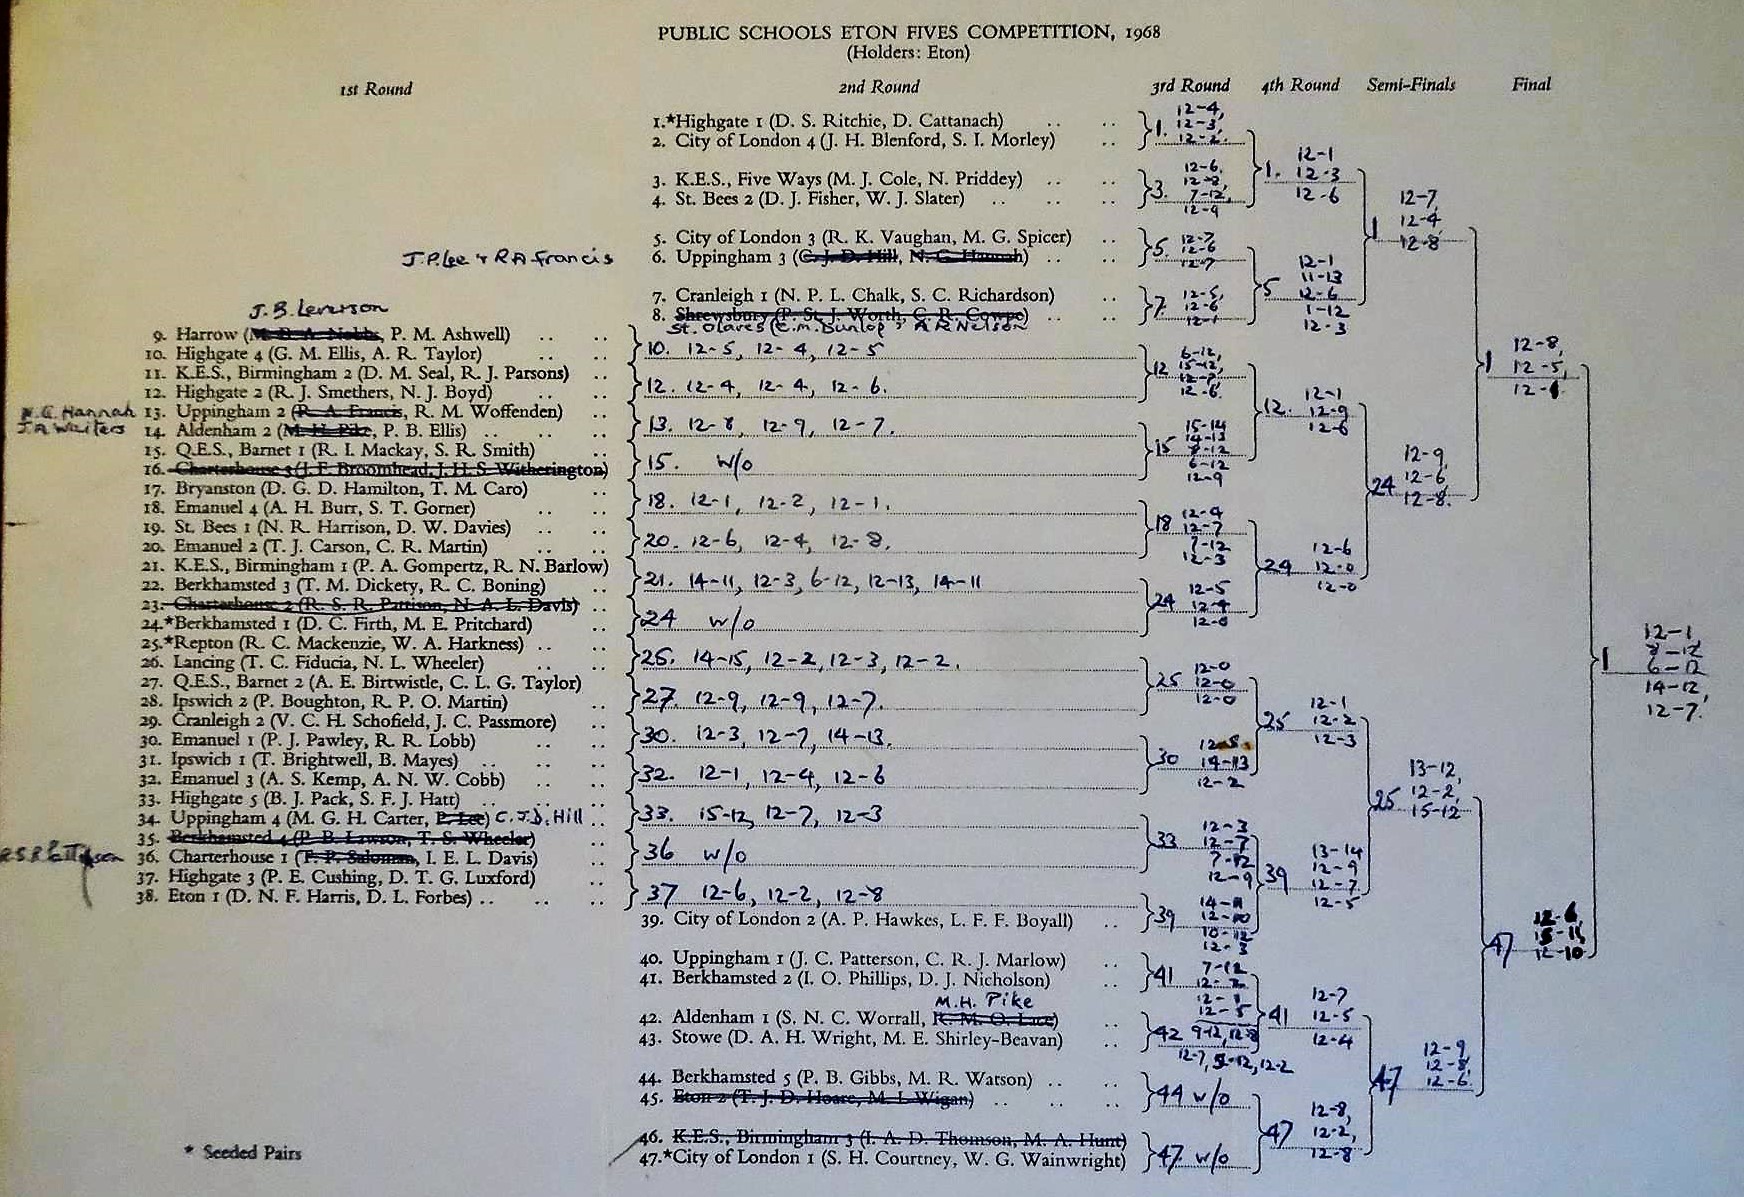 PUBLIC SCHOOLS ETON FIVES COMPETITION, 1968
(Holders: Eton)
1st Round 2nd Round 3rd Round 4th Round Semi-Finals Final
1.*Highgate 1 (D. S. Ritchie, D. Cattanach)
2. City of London 4 (J. H. Blenford, S. I. Morley)
1. 12-4, 12-3, 12-2.
3. K.E.S., Five Ways (M. J. Cole, N. Priddey)
4. St. Bees 2 (D. J. Fisher, W. J. Slater)
3. 12-6, 12-8, 7-12, 12-9
1. 12-1 12-3 12-6
5. City of London 3 (R. K. Vaughan, M. G. Spicer)
J.P. Lee & R A Francis
6. Uppingham 3 (C. J. D. Hill, N. G. Hannah)
5. 12-7 12-6 12-7
7. Cranleigh 1 (N. P. L. Chalk, S. C. Richardson)
8. Shrewsbury (P. St. J. Worth, C. R. Cowpe)
St. Olaves (C.M. Dunlop & A R Nelson
7. 12-5, 12-6 12-1
5 12-1 11-13 12-6 1-12 12-3
1 12-7, 12-4, 12-8
J. B. Leverson
9. Harrow (P. M. Ashwell)
10. Highgate 4 (G. M. Ellis, A. R. Taylor)
10. 12-5, 12-4, 12-5
11. K.E.S., Birmingham 2 (D. M. Seal, R. J. Parsons)
12. Highgate 2 (R. J. Smethers, N. J. Boyd)
12. 12-4, 12-4, 12-6.
12 6-12, 15-12, 12-7 12-6
N. G. Hannah 13. Uppingham 2 (R. A. Francis, R. M. Woffenden)
14. Aldenham 2 (M. H. Pike, P. B. Ellis)
13. 12-8, 12-9, 12-7.
15. Q.E.S., Barnet 1 (R. I. Mackay, S. R. Smith)
16. Charterhouse 3 (J. F. Broomhead, J. H. S. Witherington)
15. w/o
15 15-14 14-13 8-12 6-12 12-9
12. 12-1 12-9 12-6
17. Bryanston (D. G. D. Hamilton, T. M. Caro)
18. Emanuel 4 (A. H. Burr, S. T. Gorner)
18. 12-1, 12-2, 12-1.
19. St. Bees 1 (N. R. Harrison, D. W. Davies)
20. Emanuel 2 (T. J. Carson, C. R. Martin)
20. 12-6, 12-4, 12-8.
18 12-4 12-7 7-12 12-3
21. K.E.S., Birmingham 1 (P. A. Gompertz, R. N. Barlow)
22. Berkhamsted 3 (T. M. Dickety, R. C. Boning)
21. 14-11, 12-3, 6-12, 12-13, 14-11
23. Charterhouse 2 (R. S. R. Pattison, N. A. L. Davis)
24.*Berkhamsted 1 (D. C. Firth, M. E. Pritchard)
24 w/o
24 12-5 12-4 12-0
24 12-6 12-0 12-0
24 12-9, 12-6, 12-8.
1 12-8, 12-5,
25.*Repton (R. C. Mackenzie, W. A. Harkness)
26. Lancing (T. C. Fiducia, N. L. Wheeler)
25. 14-15, 12-2, 12-3, 12-2.
27. Q.E.S., Barnet 2 (A. E. Birtwistle, C. L. G. Taylor)
28. Ipswich 2 (P. Boughton, R. P. O. Martin)
27. 12-9, 12-9, 12-7.
25 12-0 12-0 12-0
29. Cranleigh 2 (V. C. H. Schofield, J. C. Passmore)
30. Emanuel 1 (P. J. Pawley, R. R. Lobb)
30. 12-3, 12-7, 14-13.
31. Ipswich 1 (T. Brightwell, B. Mayes)
32. Emanuel 3 (A. S. Kemp, A. N. W. Cobb)
32. 12-1, 12-4, 12-6
30 14-13 12-2
25 12-1 12-2 12-3
33. Highgate 5 (B. J. Pack, S. F. J. Hatt)
34. Uppingham 4 (M. G. H. Carter, P. Lee) C. J. D. Hill
33. 15-12, 12-7, 12-3
35. Berkhamsted 4 (P. B. Lawson, T. S. Wheeler)
36. Charterhouse 1 (I. E. L. Davis)
36 w/o
33 12-3 12-7 7-12 12-9
37. Highgate 3 (P. E. Cushing, D. T. G. Luxford)
38. Eton 1 (D. N. F. Harris, D. L. Forbes)
37 12-6, 12-2, 12-8
39. City of London 2 (A. P. Hawkes, L. F. F. Boyall)
39 12-10 10-12 12-3
39 13-14 12-9 12-7 12-5
25 13-12, 12-2, 15-12
40. Uppingham 1 (J. C. Patterson, C. R. J. Marlow)
41. Berkhamsted 2 (I. O. Phillips, D. J. Nicholson)
41 7-12 12-5
M.H. Pike
42. Aldenham 1 (S. N. C. Worrall,
43. Stowe (D. A. H. Wright, M. E. Shirley-Beavan)
42 9-12, 12-7, 12-2
41 12-7 12-5 12-4
44. Berkhamsted 5 (P. B. Gibbs, M. R. Watson)
45. Eton 2 (T. J. D. Hoare, M. I. Wigan)
44 w/o
46. K.E.S., Birmingham 3 (I. A. D. Thomson, M. A. Hunt)
47.*City of London 1 (S. H. Courtney, W. G. Wainwright)
47. w/o
47 12-8, 12-2, 12-8
47 12-9 12-8, 12-6
47 12-10
1 12-1, 8-12 6-12 14-12, 12-7.
* Seeded Pairs